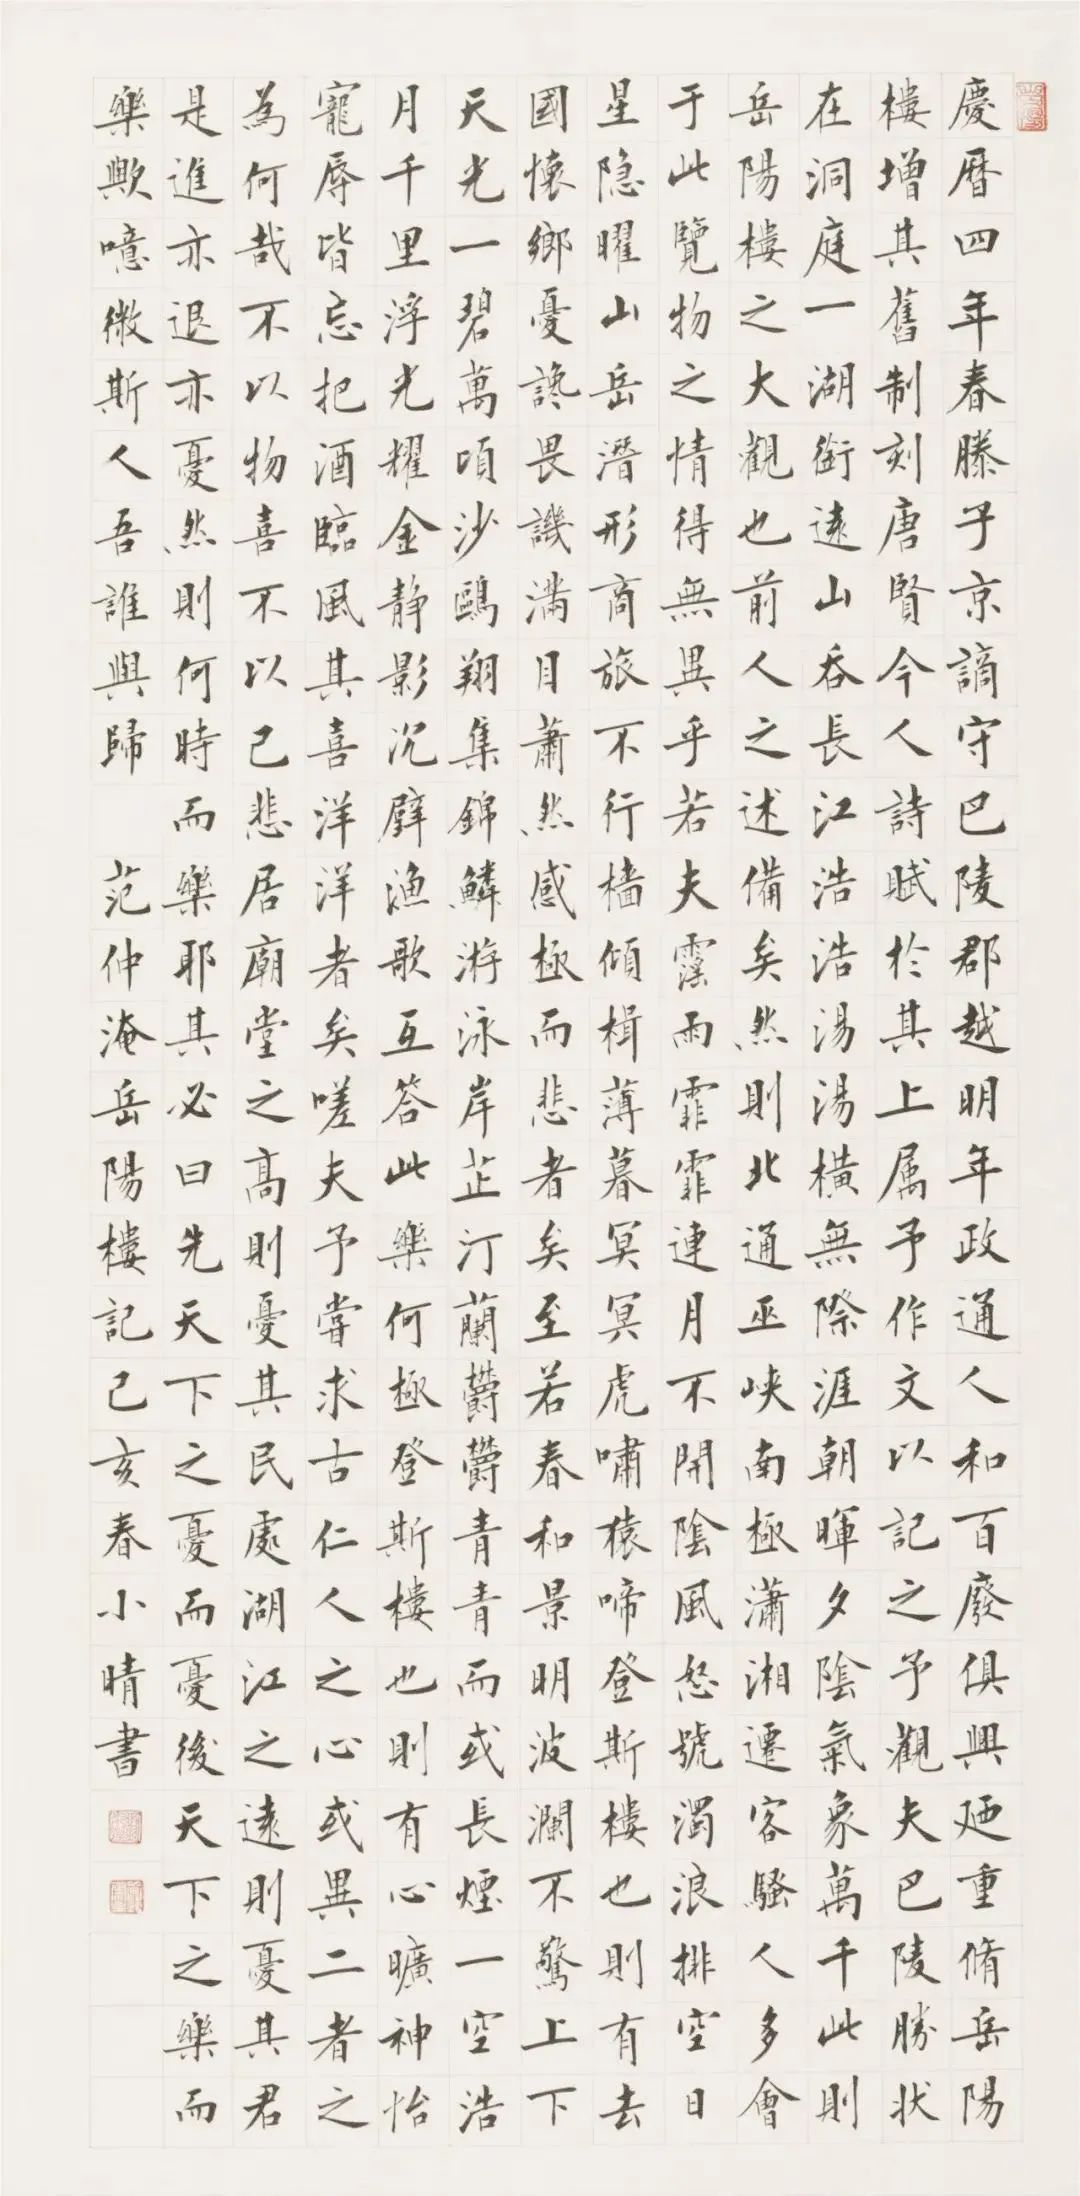 慶曆四年春滕子京謫守巴陵郡越明年政通人和百廢俱興廼重脩岳陽
樓增其舊制刻唐賢今人詩賦於其上属予作文以記之予觀夫巴陵勝狀
在洞庭一湖銜遠山吞長江浩浩湯湯橫無際涯朝暉夕陰氣象萬千此則
岳陽樓之大觀也前人之述備矣然則北通巫峽南極瀟湘遷客騷人多會
于此覽物之情得無異乎若夫霪雨霏霏連月不開陰風怒號濁浪排空日
星隐曜山岳潛形商旅不行檣傾楫薄暮冥冥虎嘯猿啼登斯樓也則有去
國懷鄉憂讒畏譏滿目蕭然感極而悲者矣至若春和景明波瀾不驚上下
天光一碧萬頃沙鷗翔集錦鱗游泳岸芷汀蘭欝欝青青而或長煙一空浩
月千里浮光耀金静影沉璧漁歌互答此樂何極登斯樓也則有心曠神怡
寵辱皆忘把酒臨風其喜洋洋者矣嗟夫予嘗求古仁人之心或異二者之
為何哉不以物喜不以己悲居廟堂之高則憂其民處湖江之遠則憂其君
是進亦退亦憂然則何時而樂耶其必曰先天下之憂而憂後天下之樂而
樂歟噫微斯人吾誰與歸　范仲淹岳陽樓記己亥春小晴書